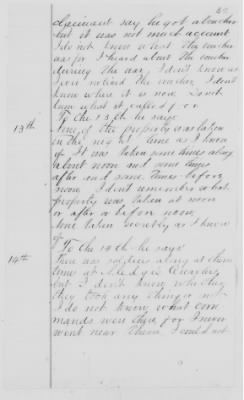 Claimant say he got a voucher
but it was not much account.
I do not know what the voucher
was for I heard about the voucher
during the war. I don't know as
I ever noticed the voucher I don't
know where it is now. Don't
know what it called for.
To the 13th he says
13th
None of the property was taken
in the night time as I know
of. It was taken some times along
about noon and some times
after and some times before
noon. I don't remember what
property was taken at noon
or after or before noon,
None taken secretly as I know
of.
To the 14th he says
14th
There was soldiers along at them
times at Quarters,
but I don't know whether
they took any things or not
I do not know what com
mands were there for I never
went near them. I could not